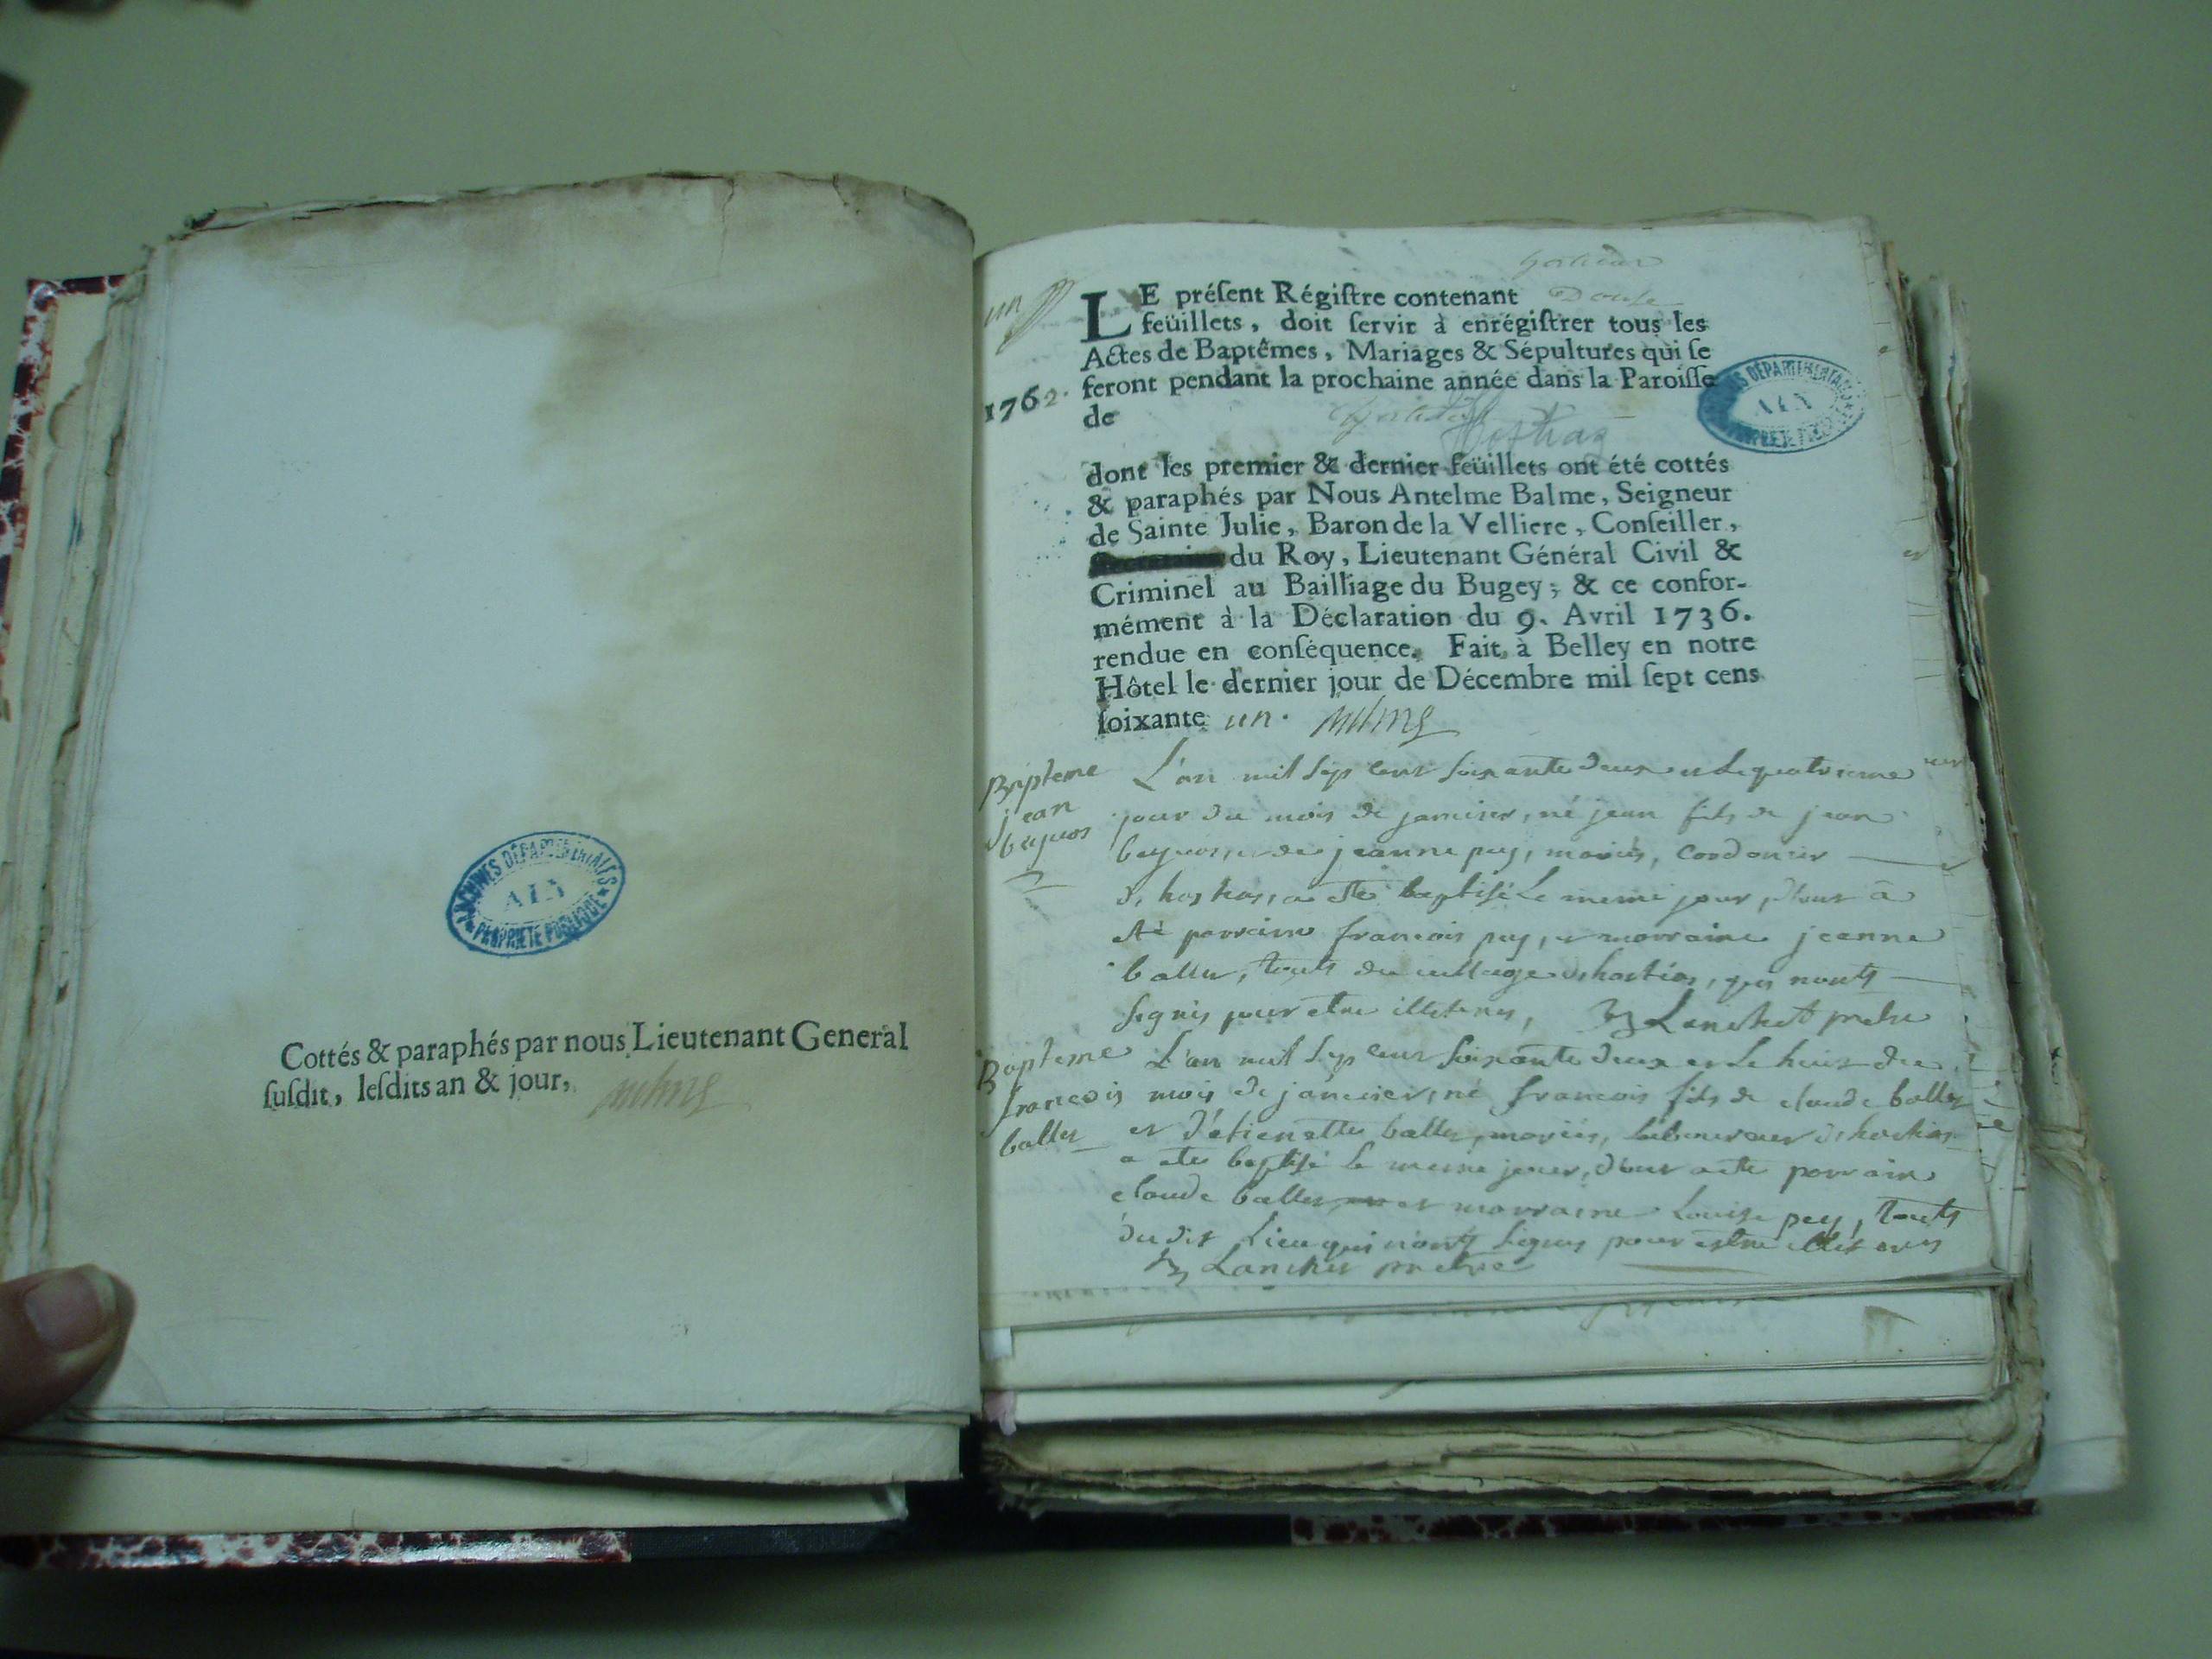 ARCHIVES DÉPARTEMENTALES
AIN
PROPRIÉTÉ PUBLIQUE
Cottés & paraphés par nous Lieutenant General
ſuſdit, leſdits an & jour,
un
Douse
LE préſent Régiſtre contenant
feüillets, doit ſervir à enrégiſtrer tous les
Actes de Baptêmes, Mariages & Sépultures qui ſe
feront pendant la prochaine année dans la Paroiſſe
1762.
de hostias
DÉPARTEMENTALES
AIN
dont les premier & dernier feüillets ont été cottés
& paraphés par Nous Antelme Balme, Seigneur
de Sainte Julie, Baron de la Velliere, Conſeiller,
du Roy, Lieutenant Général Civil &
Criminel au Bailliage du Bugey; & ce confor-
mément à la Déclaration du 9. Avril 1736.
rendue en conſéquence. Fait à Belley en notre
Hôtel le dernier jour de Décembre mil ſept cens
ſoixante un.
Bapteme
jean
L'an mil sept cent soixante deux et le quatrieme
jour du mois de janvier, né jean fils de jean
et de jeanne puy, mariés, cordonier
d'hostias, a été baptisé le meme jour, dont à
été parrain francois puy, et marraine jeanne
ballu, touts du village d'hostias, qui nonts
signés pour etre illeteres, Lanchet pretre
Bapteme
francois
ballu
L'an mil sept cent soixante deux et le huit du
mois de janvier, né francois fils de claude ballu
et d'etienette ballu, mariés, laboureur d'hostias
a ete baptisé le meme jour, dont a ete parrain
claude ballu, et marraine Louise puy, touts
du dit Lieu qui n'onts signés pour estre illeteres
Lanchet pretre